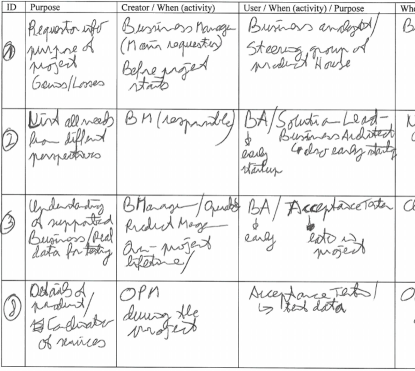 ID Purpose Creator / When (activity) User / When (activity) / Purpose Whe
1
Requestor info
purpose of
project
Gains/Losses
Business Manager
(Main requestor)
Before project
starts
Business analyst/
Steering group of
product House
B
2
List all needs
from different
perspectives
BM (responsible)
BA/Solution Lead-
Business Architect
early
startup
also early startup
3
Understanding
of supported
Business/Real
data for testing
BManager/
Product Manag
project
lifetime/
BA/ Acceptance Tester
early
late in
project
8
Details of
product/
Coordinator
of services
OPM
during the
project
Acceptance Tests/
test data
O